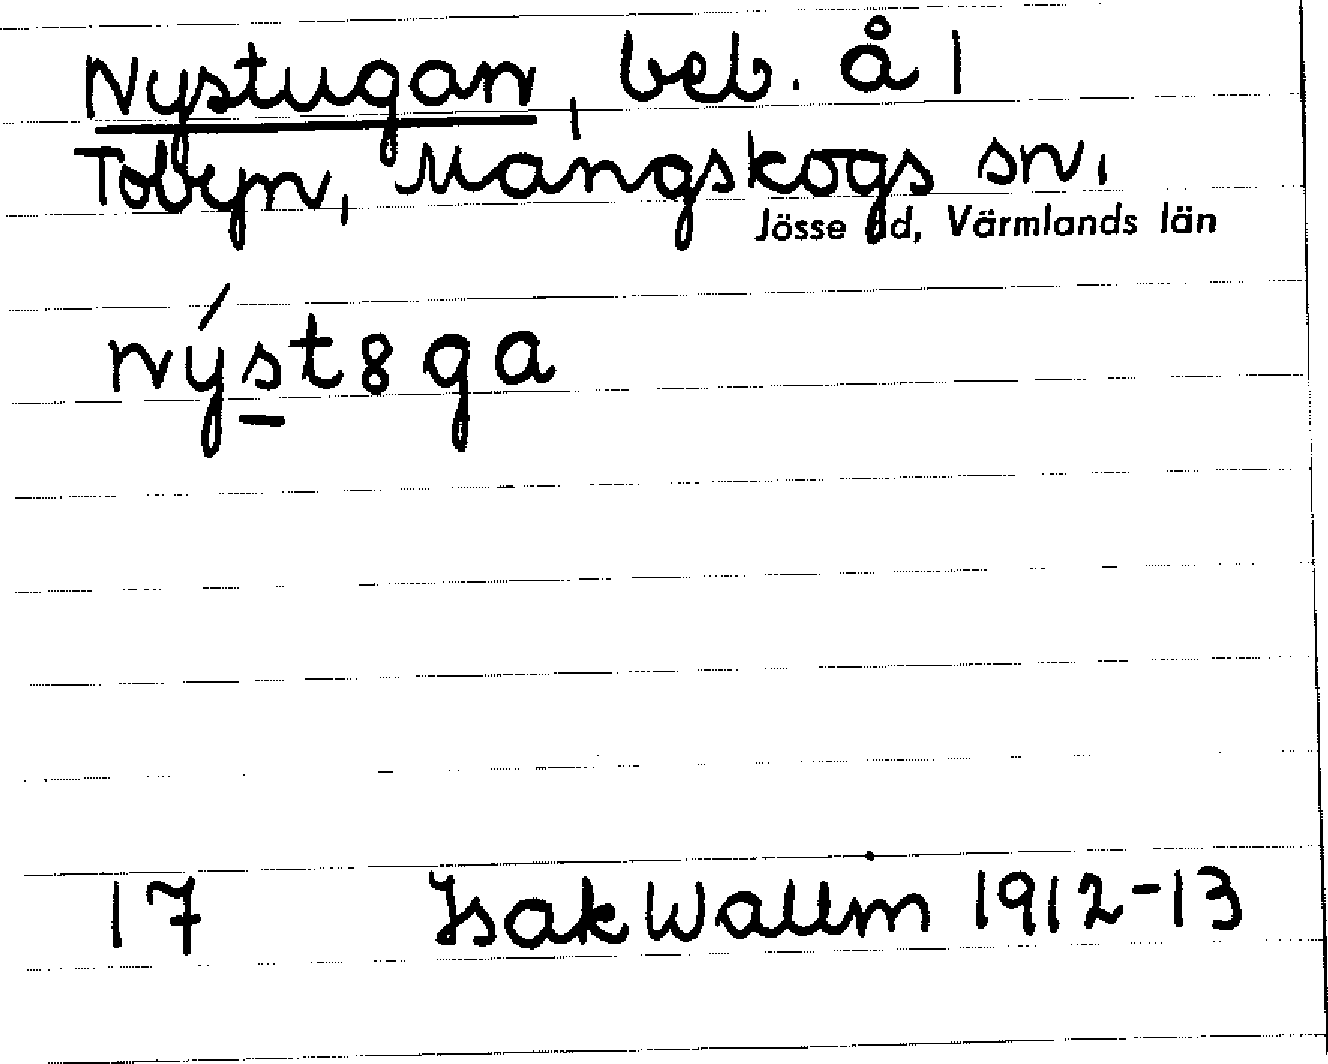 Nystugan, beb. å 1
Tobyn, Mangskogs sn,
Jösse hd, Värmlands län
nýst8ga
17 Isak Wallin 1912-13